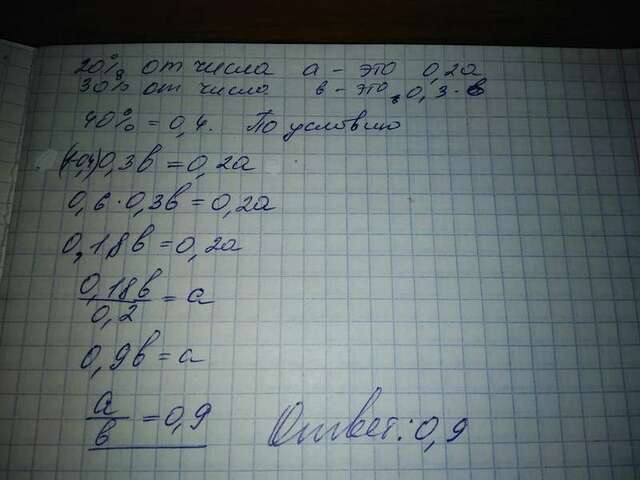 20% от числа а - это 0,2а
30% от числа в - это 0,3·в
40% = 0,4. По условию
(1-0,4)0,3в = 0,2а
0,6·0,3в = 0,2а
0,18в = 0,2а
0,18в/0,2 = а
0,9в = а
а/в = 0,9 Ответ: 0,9